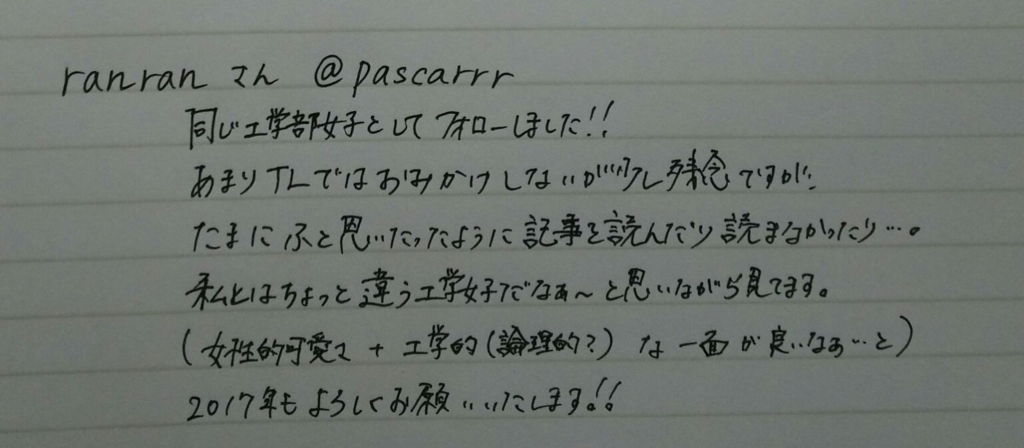 ranranさん @pascarrr
同じ工学部女子としてフォローしました!!
あまりTLではおみかけしないが少し残念ですが、
たまにふと思いたったように記事を読んだり読まなかったり…。
私とはちょっと違う工学女子だなぁ～と思いながら見てます。
(女性的可愛さ + 工学的(論理的?) な一面が良いなぁ…と)
2017年もよろしくお願いいたします!!